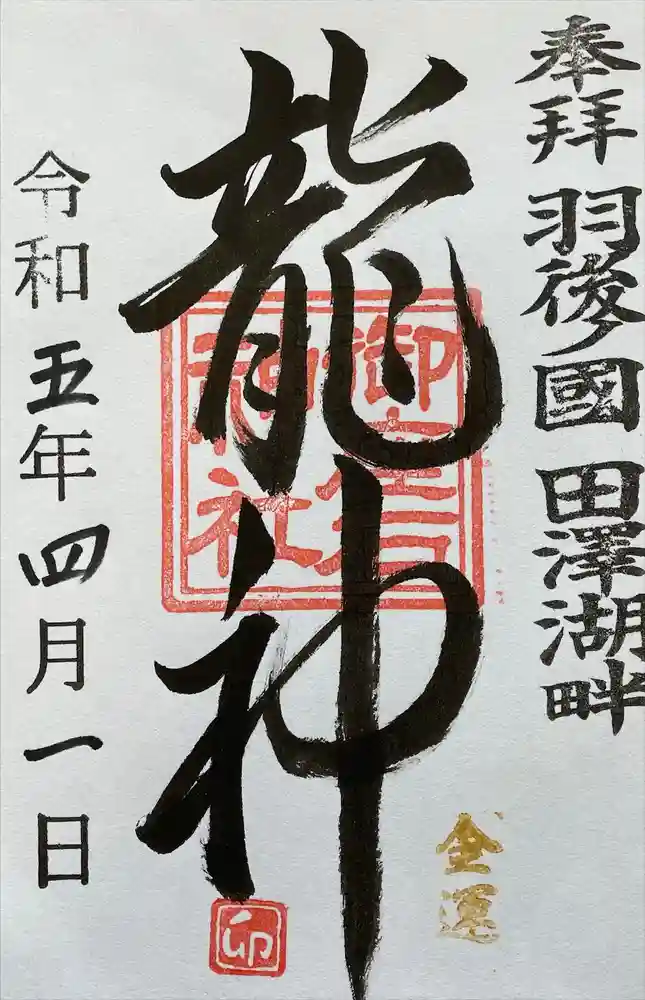 奉拜
羽後國
田澤湖畔
龍神
御座石
神社
金運
卯
令和五年四月一日